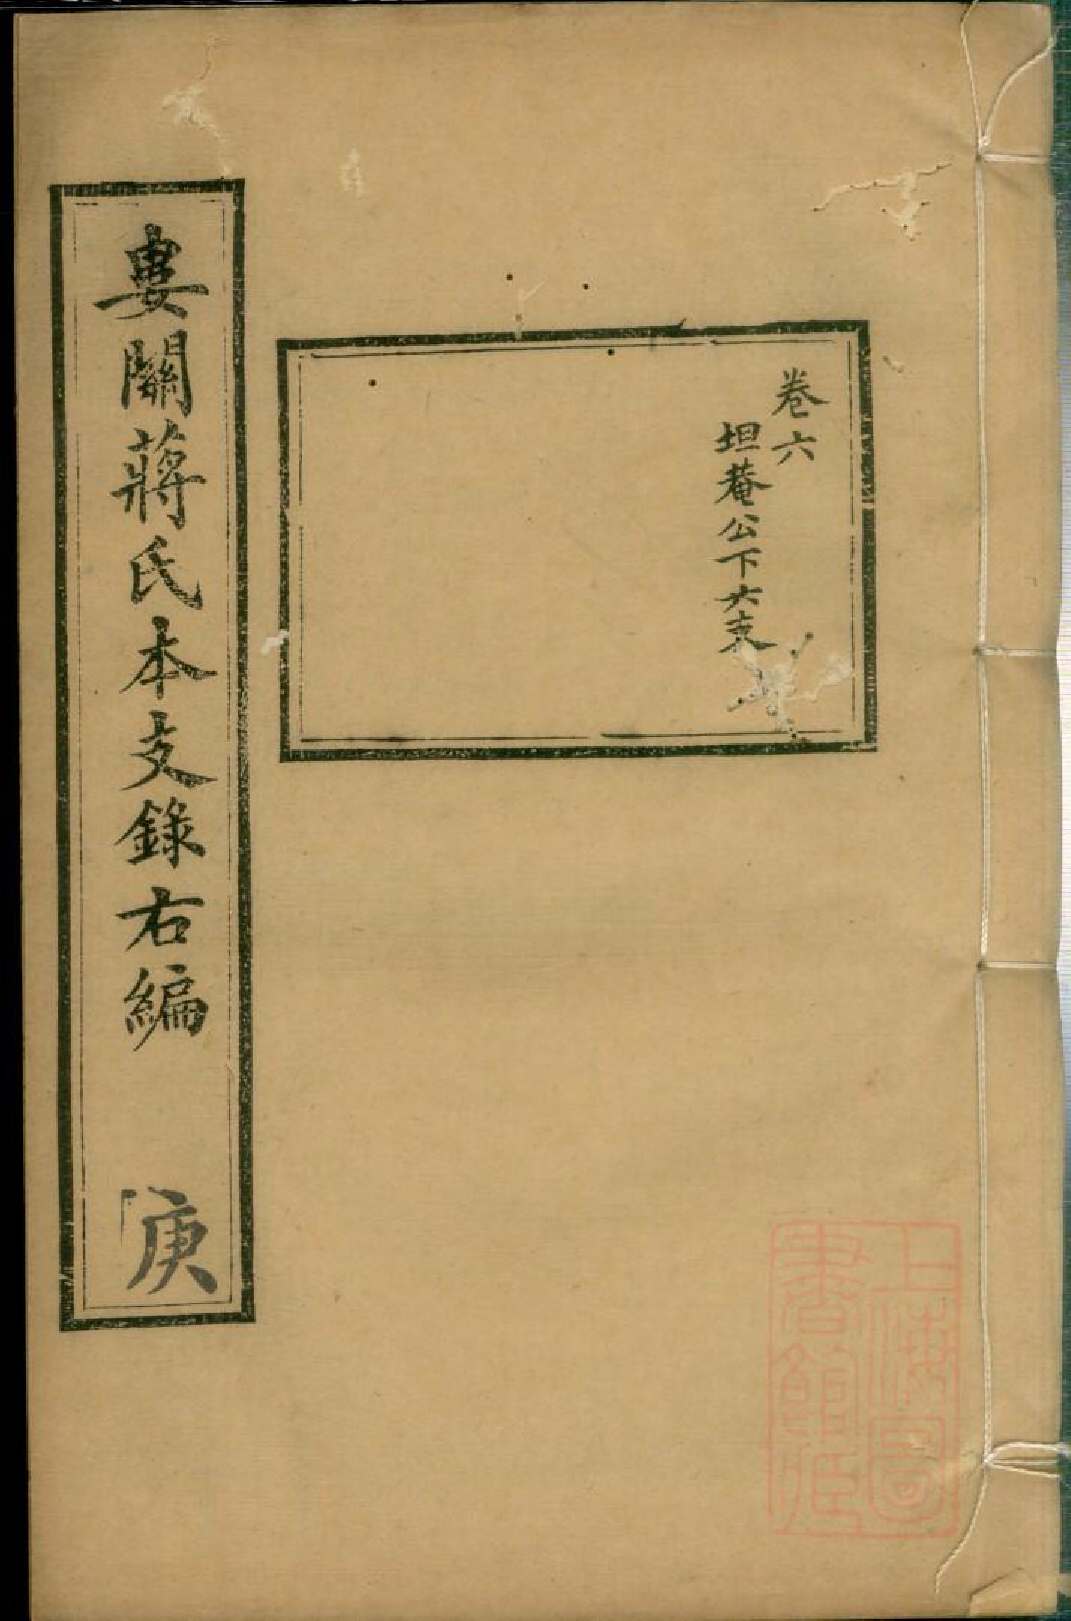 卷六
坦菴公下六支
婁關蔣氏本支錄右編 庚
上海圖
書館藏